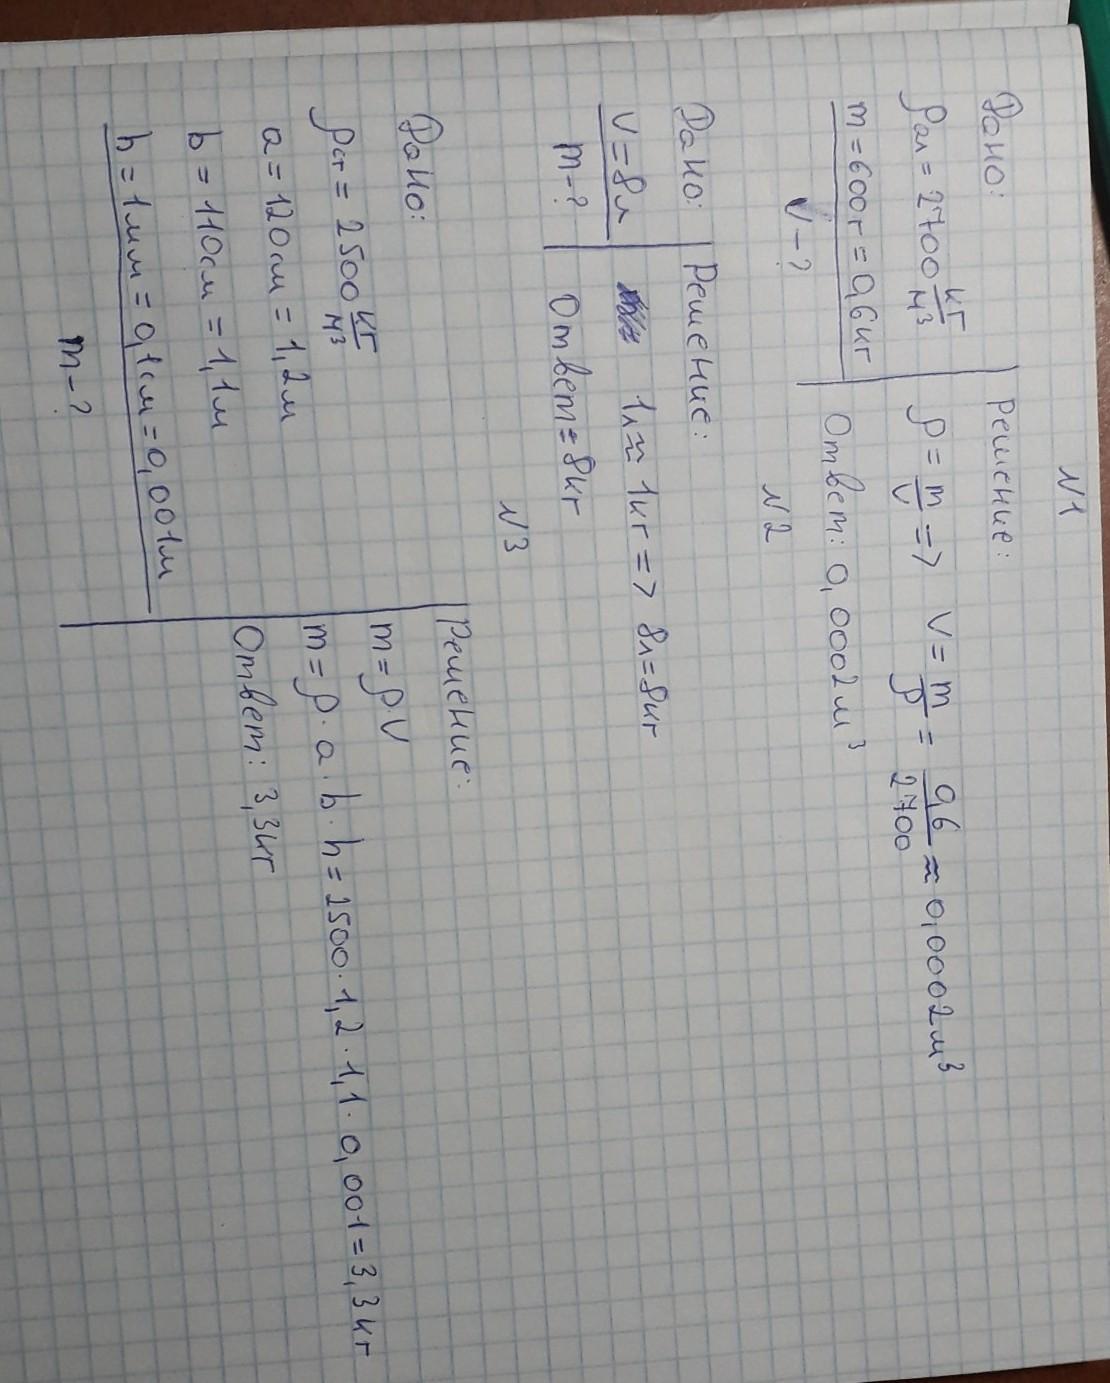 N1
Дано:
ρал = 2700 кг/м³
m = 600г = 0,6кг
V - ?
Решение:
ρ = m/V => V = m/ρ = 0,6/2700 ≈ 0,0002м³
Ответ: 0,0002м³
N2
Дано:
V = 8л
m - ?
Решение:
1л ≈ 1кг => 8л = 8кг
Ответ = 8кг
N3
Дано:
ρст = 2500 кг/м³
a = 120см = 1,2м
b = 110см = 1,1м
h = 1мм = 0,1см = 0,001м
m - ?
Решение:
m = ρ·V
m = ρ·a·b·h = 2500·1,2·1,1·0,001 = 3,3кг
Ответ: 3,3кг